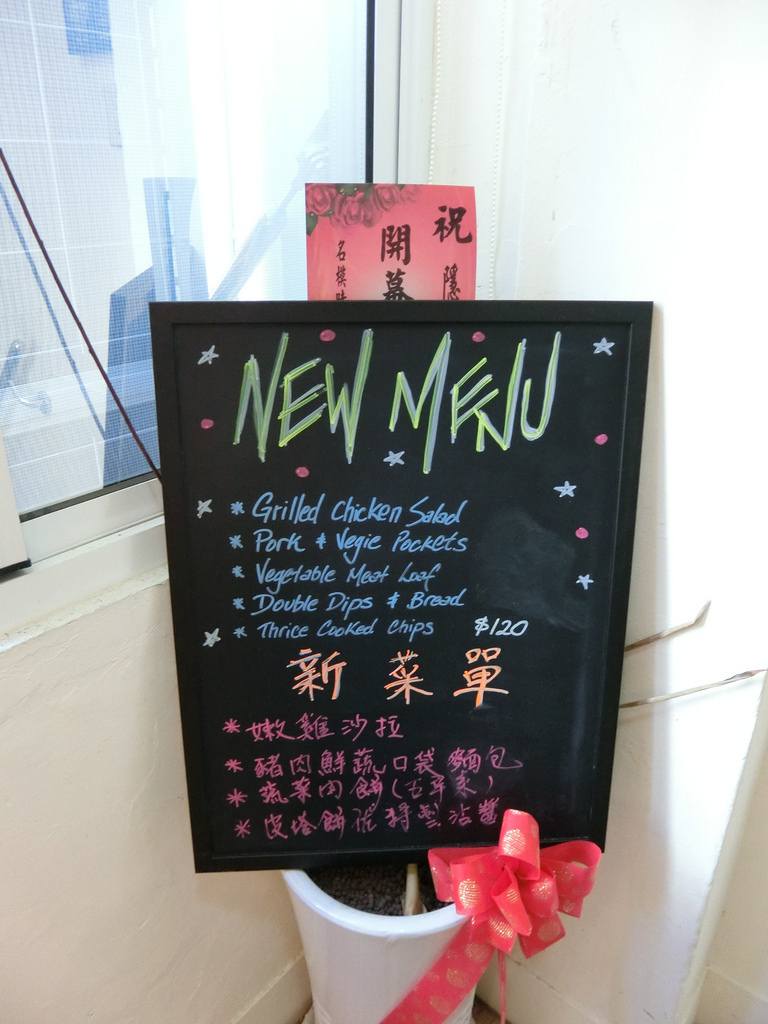 祝 隱
開幕
名模
NEW MENU
* Grilled Chicken Salad
* Pork & Vegie Pockets
* Vegetable Meat Loaf
* Double Dips & Bread
* Thrice Cooked Chips $120
新菜單
* 嫩雞沙拉
* 豬肉鮮蔬口袋麵包
* 蔬菜肉餅(
* 皮塔餅 特製沾醬